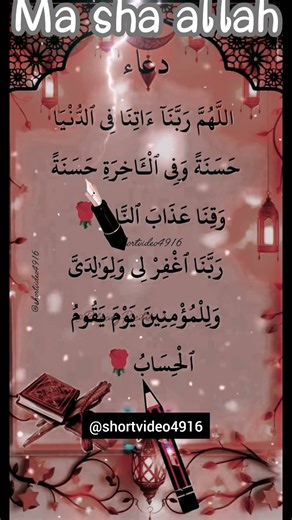 Ma sha allah
دعاء
اللَّهُمَّ رَبَّنَآ ءَاتِنَا فِى ٱلدُّنْيَا
حَسَنَةً وَفِى ٱلْـَٔاخِرَةِ حَسَنَةً
وَقِنَا عَذَابَ
@shortvideo4916
رَبَّنَا ٱغْفِرْ لِى وَلِوَٰلِدَىَّ
وَلِلْمُؤْمِنِينَ يَوْمَ يَقُومُ
ٱلْحِسَابُ
@shortvideo4916